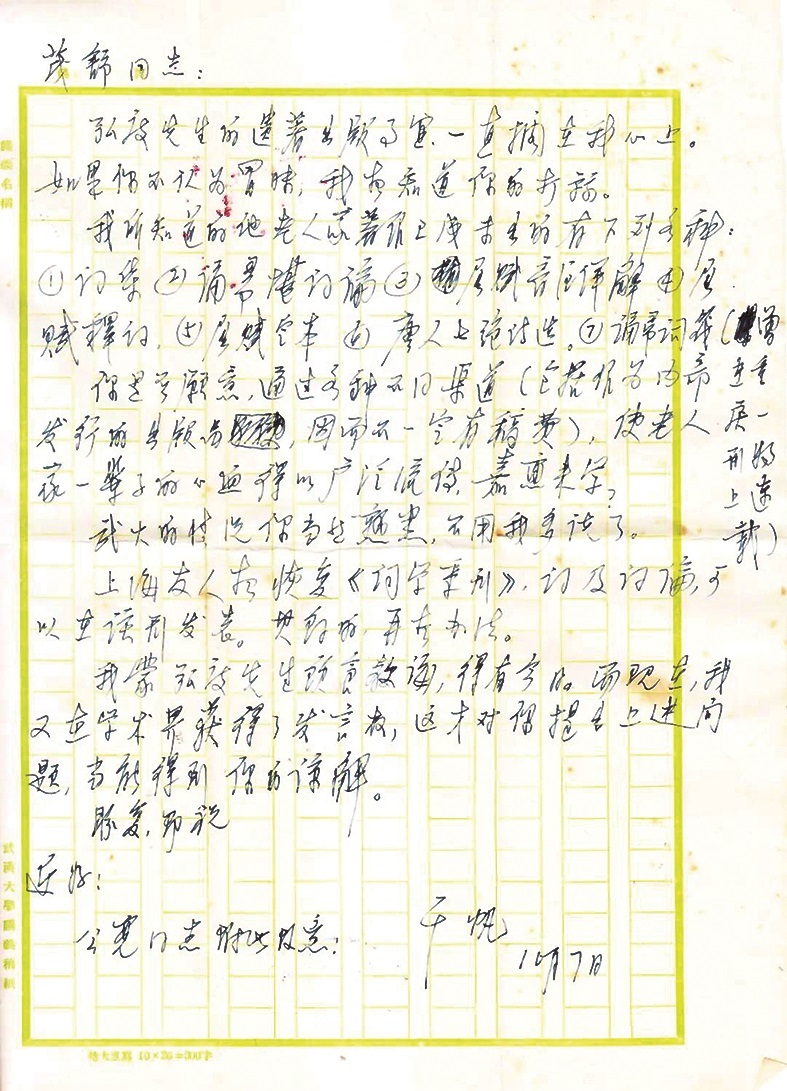 茂舒同志：
弘度先生的遗著出版事宜，一直摆在我心上。
如果你不认为冒昧，我想知道你的打算。
我所知道的他老人家著作已成未出的有下列各种：
①词集②诵帚堪词论③屈赋音注详解④屈
赋释词，⑤屈赋定本⑥唐人七绝诗选。⑦诵帚词筏（曾
在重庆一刊物上连载）
你是否愿意，通过各种不同渠道（包括作为内部
发行的出版，因而不一定有稿费），使老人
家一辈子的心血得以广泛流传，嘉惠来学？
武大的情况你当然熟悉，不用我多说了。
上海友人想恢复《词学季刊》，词及词论，可
以在该刊发表。其余的，再想办法。
我蒙弘度先生频言教诲，得有今日。而现在，我
又在学术界获得了发言权，这才对你提出上述问
题，当能得到你的谅解。
盼复，即祝
近好！
千帆
公亮同志附此致意！
10月7日
武漢大學專稿紙
地大京寫 10×30=300字